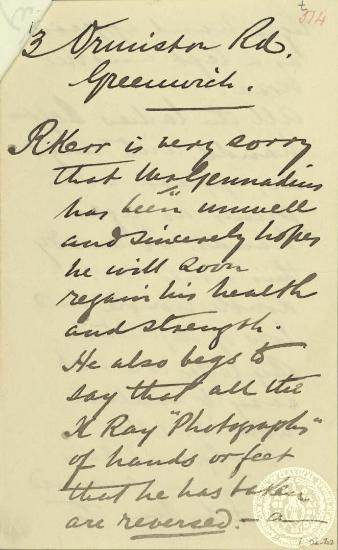 314
3 Ormiston Rd.
Greenwich.
R. Kerr is very sorry
that Mr Gennadius
has been unwell
and sincerely hopes
he will soon
regain his health
and strength.
He also begs to
say that all the
X Ray "Photographs"
of hands or feet
that he has taken
are reversed. —